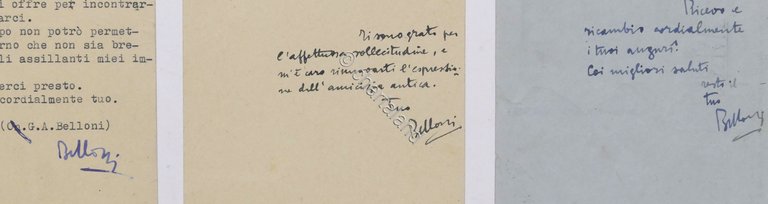 i offre per incontrar-
arci.
po non potrò permet-
rno che non sia bre-
li assillanti miei im-
erci presto.
cordialmente tuo.
(On.G.A.Belloni)
Belloni
ti sono grato per
l'affettuosa sollecitudine, e
m'è caro rinnovarti l'espressio-
ne dell'amicizia antica.
tuo
Belloni
Ricevo e
ricambio cordialmente
i tuoi auguri!
Coi migliori saluti
tuo
Belloni